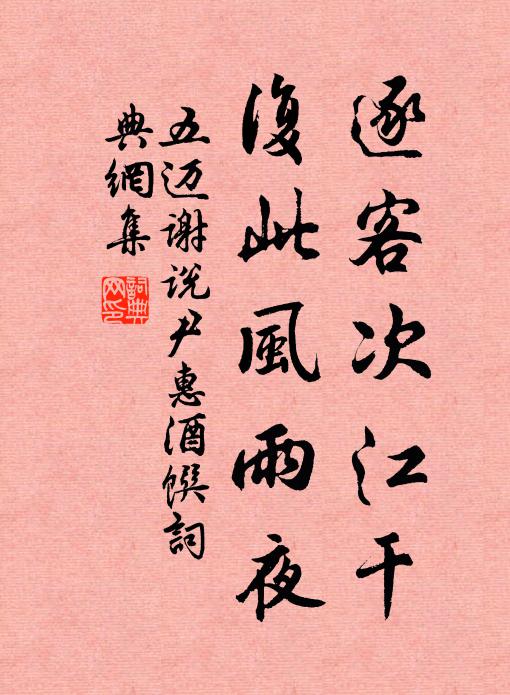 逐客次江干
復此風雨夜
五迈谢说尹惠酒馔詞
典網集
詞典
网印